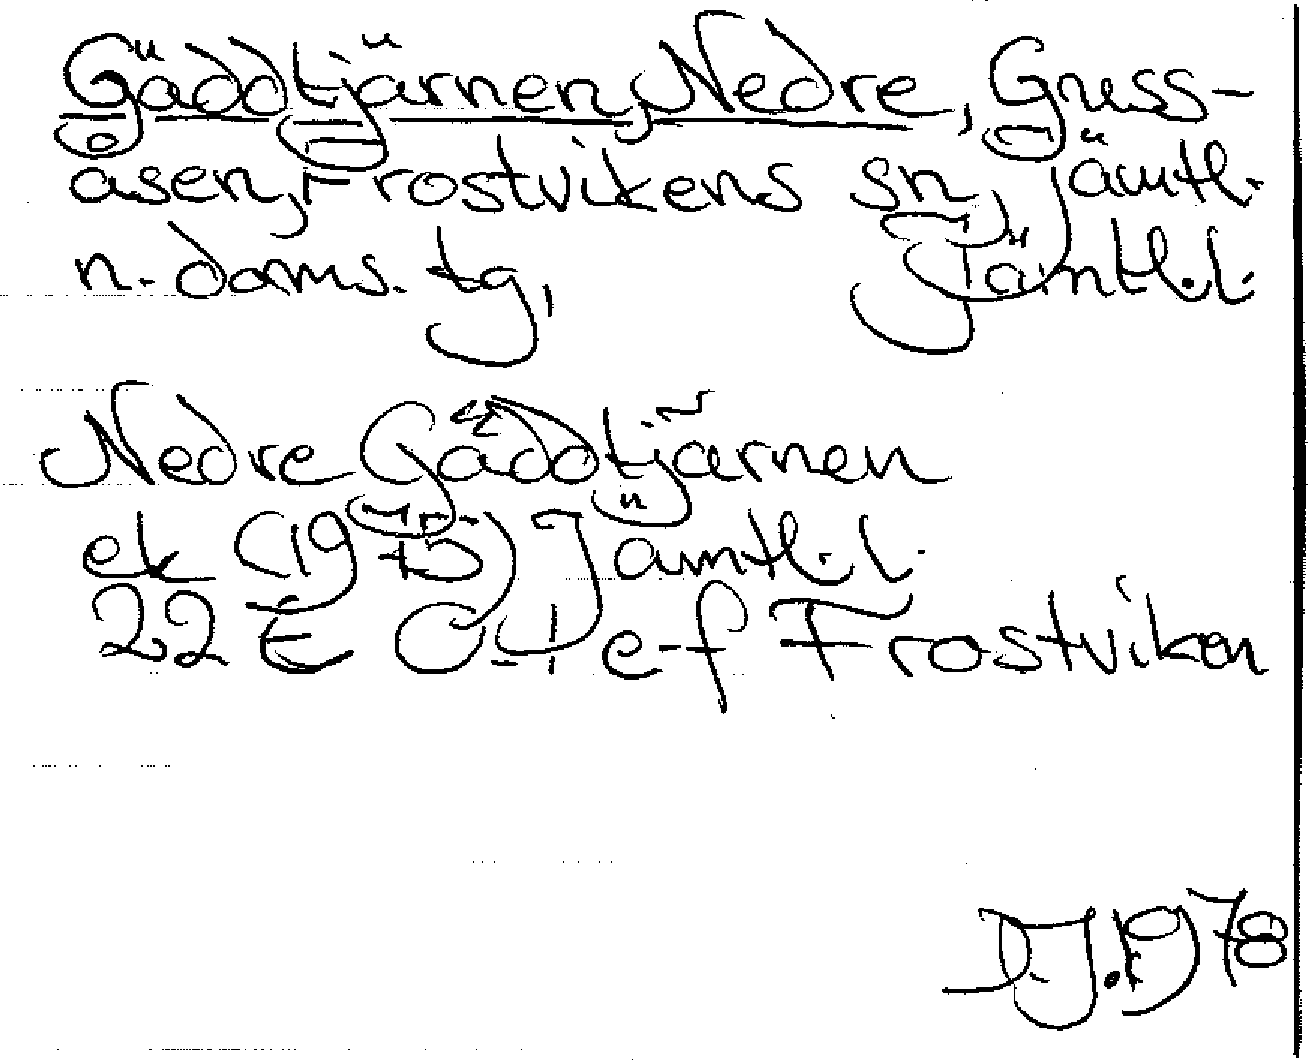 Gäddtjärnen, Nedre, Gruss-
åsen, Frostvikens sn, Jämtl.
n. doms. tg, Jämtl. l.
Nedre Gäddtjärnen
ek (1975) Jämtl. l.
22 E 0-1 e-f Frostviken
1978